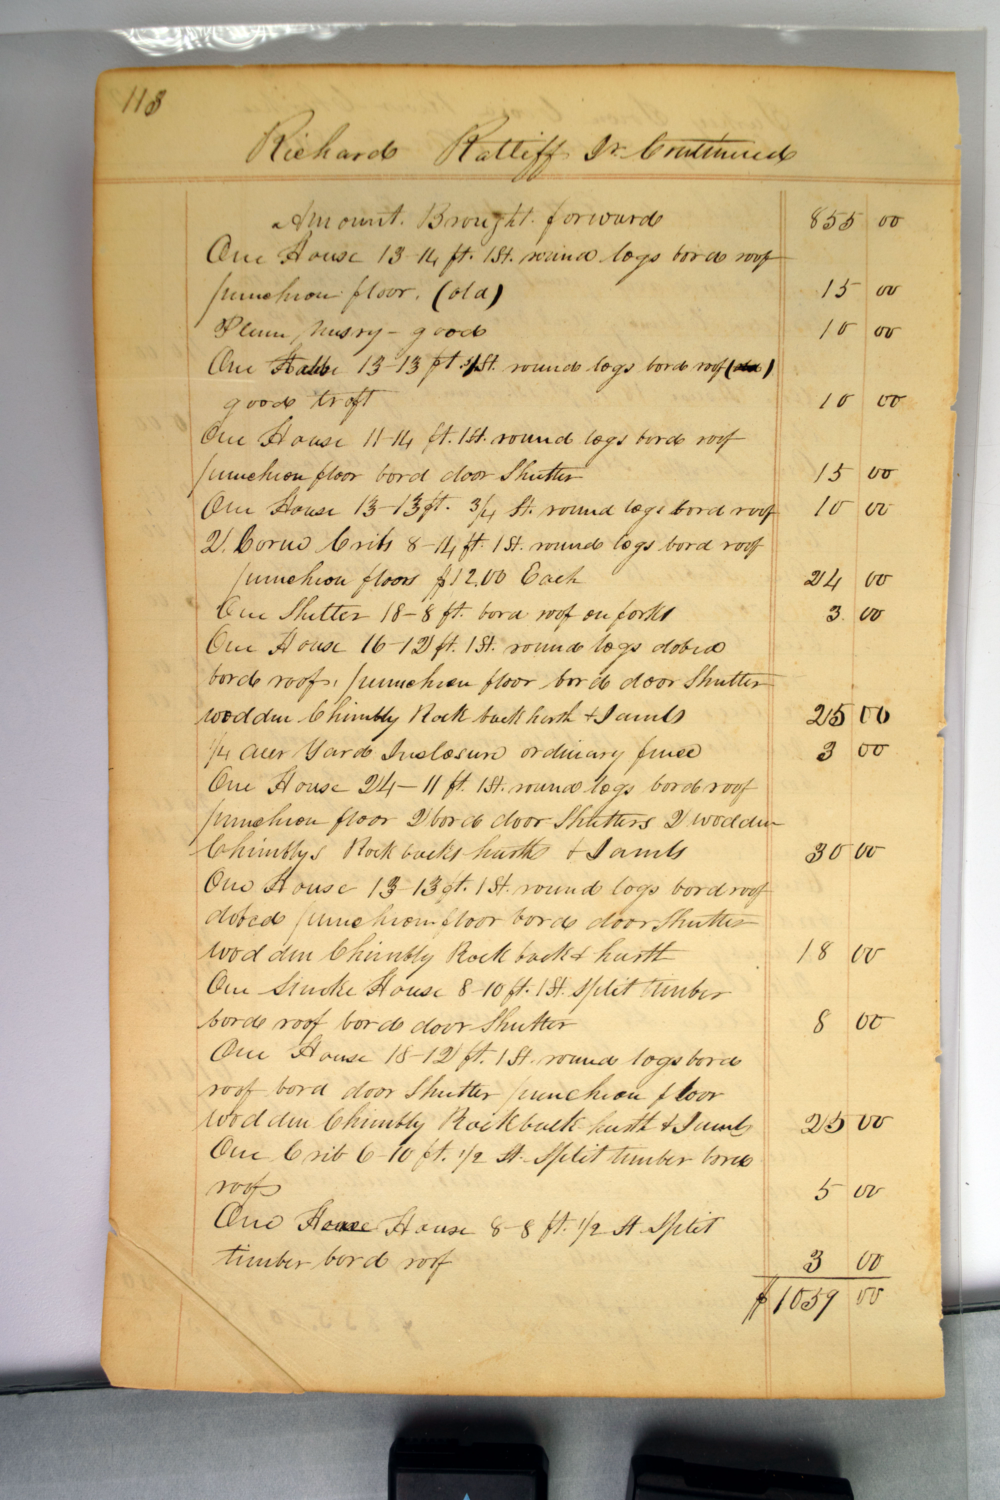 118
Richard Ratliff Jr. Continued
Amount. Brought. forward 855 00
One House 13-14 ft. 1 St. round logs bord roof
puncheon floor. (old) 15 00
Plum nusry - good 10 00
One 13-13 ft. St. round logs bord roof
good troft 10 00
One House 11-14 ft. 1 St. round logs bord roof
puncheon floor bord door Shutter 15 00
One House 13-13 ft. 3/4 St. round logs bord roof 10 00
2 Corne Cribs 8-14 ft. 1 St. round logs bord roof
puncheon floors $12.00 Each 24 00
One Shelter 18-8 ft. bord roof on forks 3 00
One House 16-12 ft. 1 St. round logs dobed
bord roof, puncheon floor bord door Shutter
wodden Chimbly Rock back harth & Jambs 25 00
1/4 acer Yard Inclosure ordinary fence 3 00
One House 24-11 ft. 1 St. round logs bord roof
puncheon floor 2 bord door Shutters 2 wodden
Chimblys Rock backs harths & Jambs 30 00
One House 13-13 ft. 1 St. round logs bord roof
dobed puncheon floor bord door Shutter
wodden Chimbly Rock back & harth 18 00
One Smoke House 8-10 ft. 1 St. Split timber
bord roof bord door Shutter 8 00
One House 18-12 ft. 1 St. round logs bord
roof bord door Shutter puncheon floor
wodden Chimbly Rock back harth & Jambs 25 00
One Crib 6-10 ft. 1/2 St. Split timber bord
roof 5 00
One House 8-8 ft. 1/2 St Split
timber bord roof 3 00
$1059 00